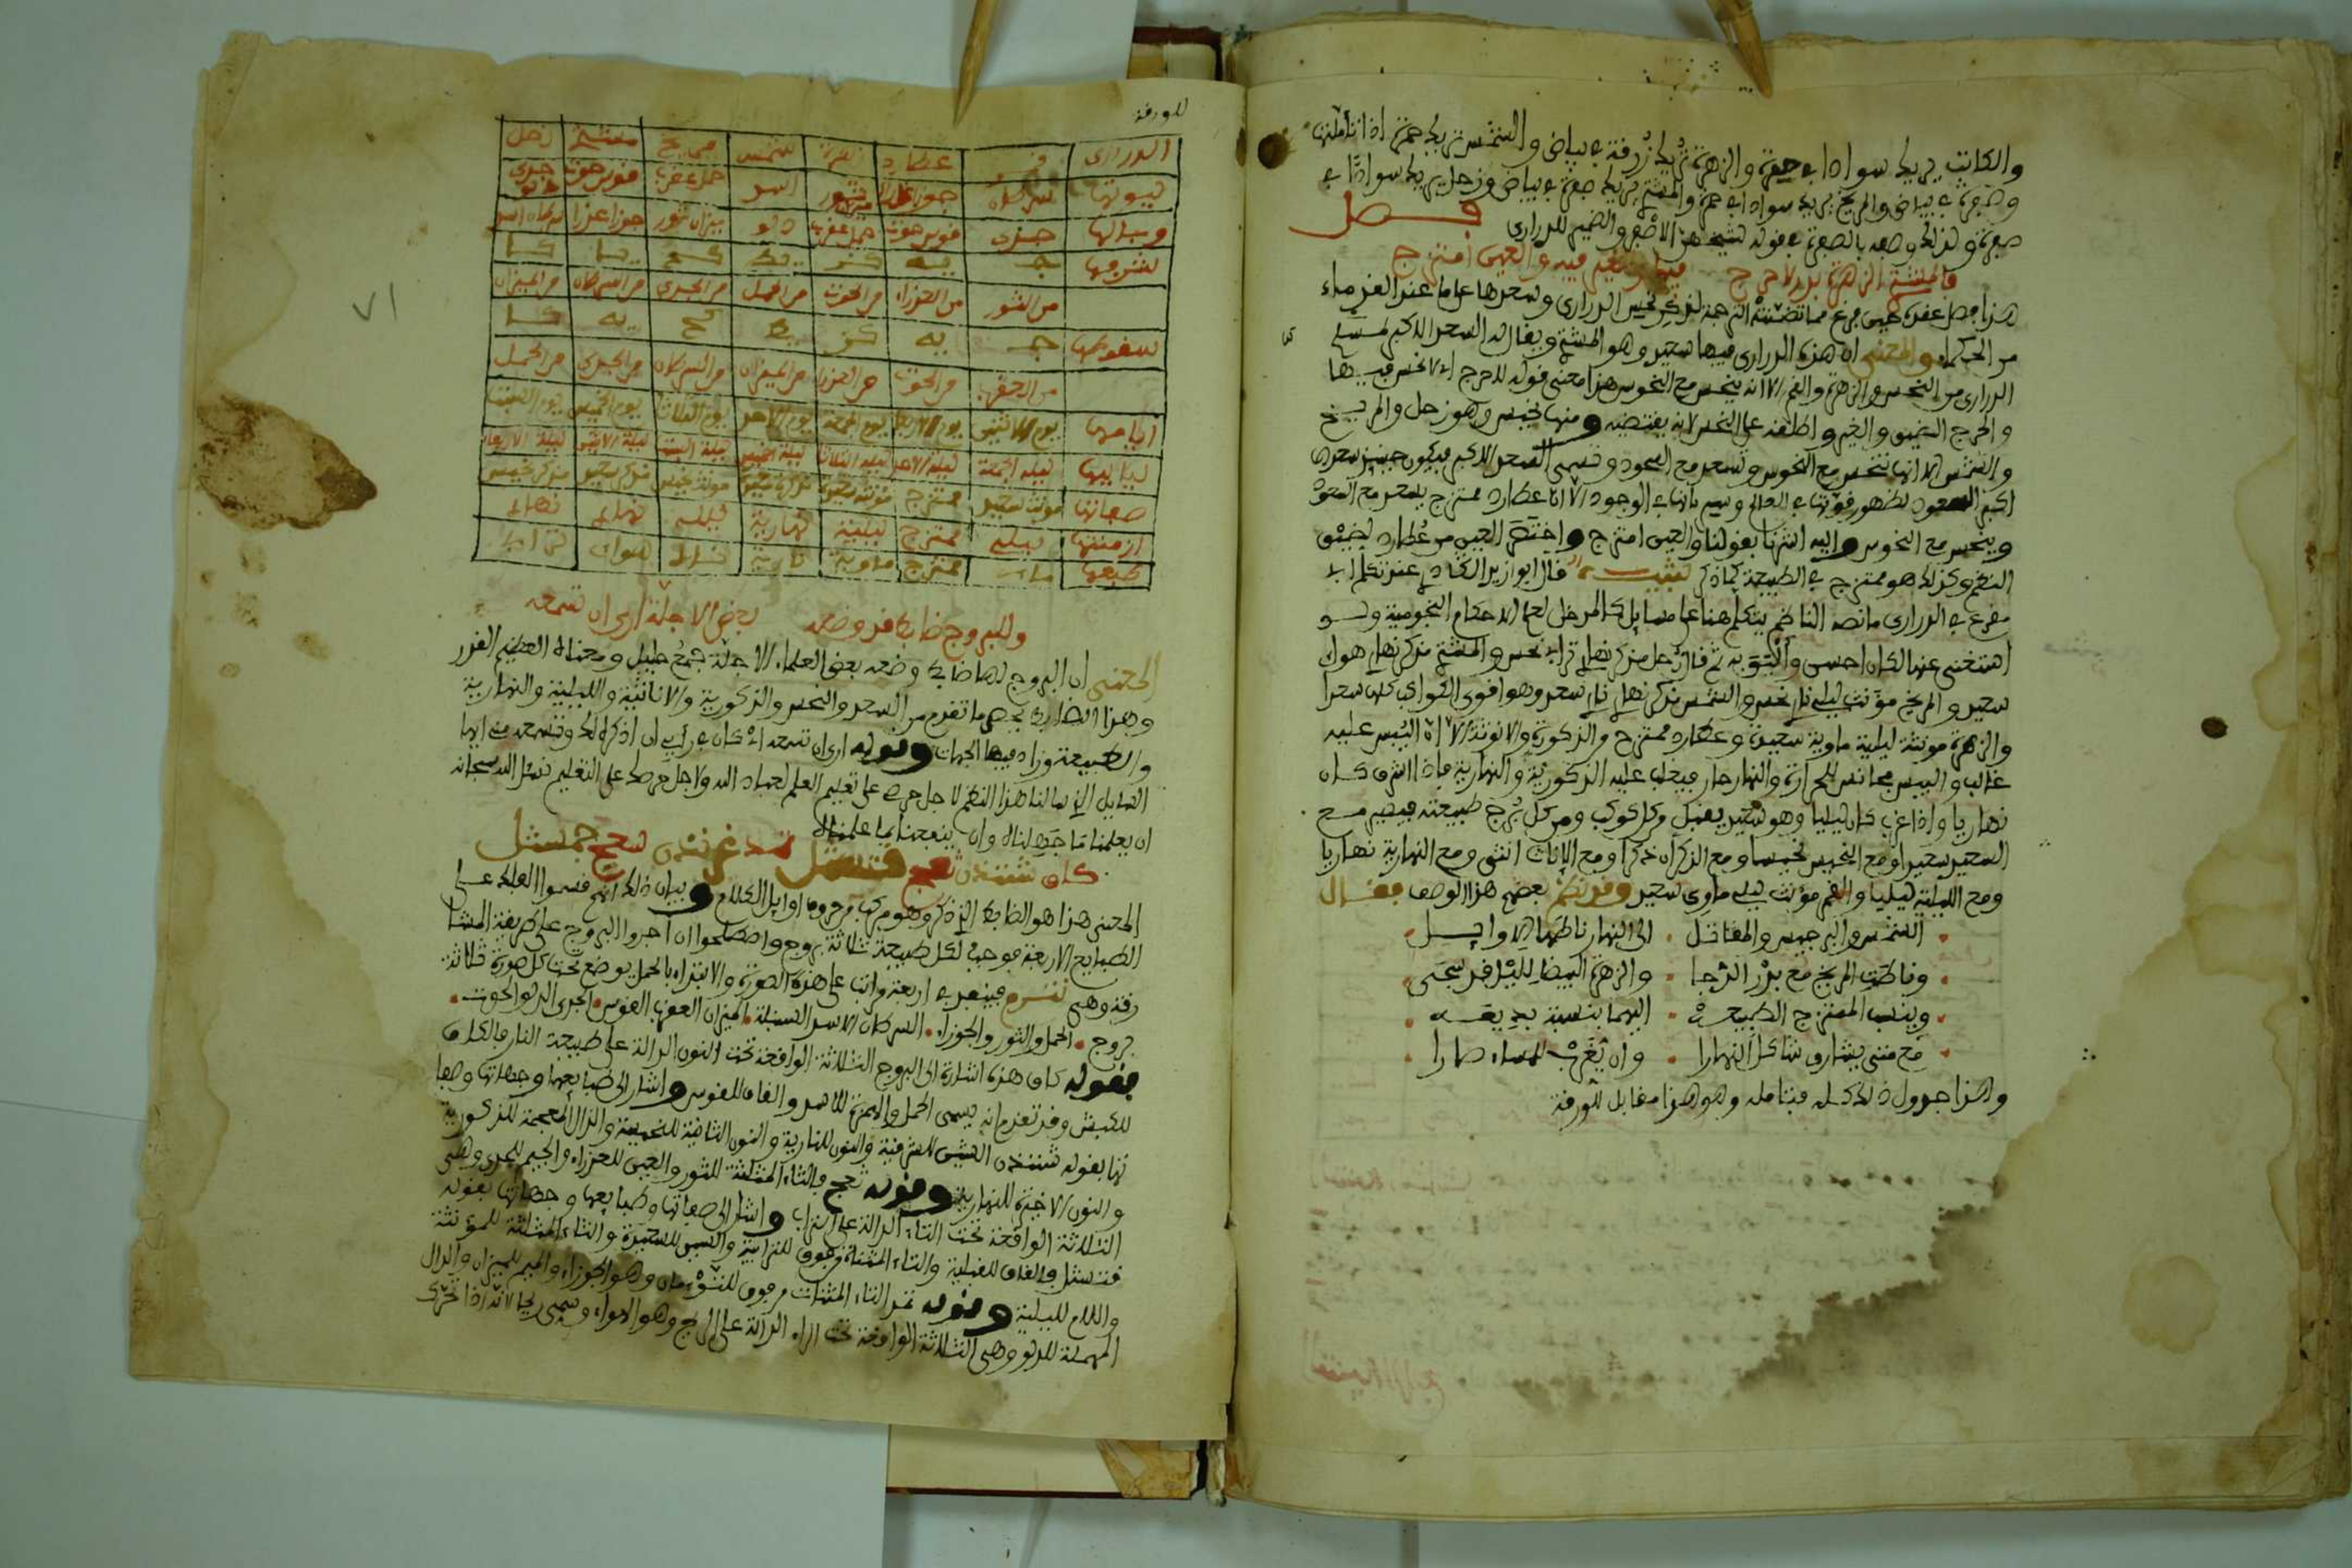 والكاتب يريك سوادا في صفرة والزهرة تريك زرقة في بياض والشمس تريك حمرة اذا تاملتها
وصفرة في بياض والمريخ يريك سوادا في حمرة والمشتري يريك صفرة في بياض وزحل يريك سوادا في
صفرة ولذلك وصفه بالصفرة في قوله
فصل
فالمشتري الزهرة بدر لا حرج
فيها
والعين امتزج
هذا فصل عقده حين فرغ مما تضمنته الترجمة لذكر نحس الدراري وسعدها على ما عند القدماء
من الحكماء والمعنى ان هذه الدراري فيها سعيد وهو المشتري ويقال له السعد الاكبر
الدراري من النحس والزهرة والقمر الا انه ينحس مع النحوس هذا معنى قوله لا حرج اي لا نحس فيها
والحرج الضيق واطلقه على النحس لانه يقتضيه ومنها نحيس وهو زحل والمريخ
والشمس الا انها تنحس مع النحوس وتسعد مع السعود وتسمى السعد الاكبر فيكون حينئذ سعدها
اكبر السعود لظهور قوتها في العالم وسريانها في الوجود الا ان عطارد ممتزج يسعد مع السعود
وينحس مع النحوس واليه اشرنا بقولنا والعين امتزج واختصر العين من عطارد لضيق
النظم وكذلك هو ممتزج في الطبيعة كما ذكر تنبيه قال ابو زيد عند تكلم
في الدراري ما نصه الناظم يتكلم هنا على مسايل كالمدخل لعلم الاحكام النجومية ولو
استغنى عنها لكان احسن وأليق به ثم قال زحل مذكر نهاري ترابي نحس والمشتري مذكر نهاري هوائي
سعيد والمريخ مؤنث ليلي ناري نحس والشمس مذكر نهاري ناري سعد وهو اقوى الكواكب كلها سعدا
والزهرة مونثة ليلية ماوية سعيدة وعطارد ممتزج والذكورة والانوثة الا ان اليبس عليه
غالب واليبس مجانس للحرارة والنهار حار فيغلب عليه الذكورية والنهارية فاذا اشرق كان
نهاريا واذا غرب كان ليليا وهو سعيد يقبل من كل كوكب ومن كل برج طبيعته فيصير مع
السعيد سعيدا ومع النحيس نحيسا ومع الذكران ذكرا ومع الاناث انثى ومع النهارية نهاريا
ومع الليلية ليليا والقمر مؤنث ليلي ماوي سعيد وقد نظم بعضهم هذا الوصف فقال
الشمس والبرجيس والمقاتل · الى النهار ناطها الاوايل
وناطت المريخ مع بدر الدجا · والزهرة البيضا لليل قد سجى
وينسب الممتزج الطبيعة · اليهما بنسبة بديعة
فمع متى يشارق شاكل النهارا · وان يغرب للمساء صارا
وهذا جدول ذلك كله فتامله وهو هذا مقابل الورقة
للورقة
٧١
الدراري | قمر | عطارد | زهرة | شمس | مريخ | مشتري | زحل
بيوتها | سرطان | جوزا | ثور ميزان | اسد | حمل عقرب | قوس حوت | جدي دلو
وبالها | جدي | قوس حوت | حمل عقرب | دلو | ميزان ثور | جوزا عذرا | سرطان اسد
شرفها | جـ | يه | كز | يط | كح | يه | كا
من الثور | من العذراء | من الحوت | من الحمل | من الجدي | من السرطان | من الميزان
سقوطها | جـ | يه | كز | يط | كح | يه | كا
من العقرب | من الحوت | من العذرا | من الميزان | من السرطان | من الجدي | من الحمل
ايامها | يوم الاثنين | يوم الاربعا | يوم الجمعة | يوم الاحد | يوم الثلاثا | يوم الخميس | يوم السبت
لياليها | ليلة الجمعة | ليلة الاحد | ليلة الثلاثا | ليلة الخميس | ليلة السبت | ليلة الاثنين | ليلة الاربعا
صفاتها | مونث سعيد | ممتزج | مونثة سعيدة | | مونث نحيس | مذكر سعيد | مذكر نحيس
ازمنتها | ليلي | ممتزج | ليلية | نهارية | ليلي | نهاري | نهاري
طبعها | ماء | ممتزج | ماوية | نارية | ناري | هوائي | ترابي
وللبروج ضابط قد وضعه
بعض الاجلة ارى ان تسمعه
المعنى ان البروج لها ضابط وضعه بعض العلماء الاجلة جمع جليل ومعناه العظيم القدر
وهذا الضابط يجمع ما تقدم من السعد والنحس والذكورية والاناثية والليلية والنهارية
والطبيعة وزاد فيها الجهات وقوله ارى ان تسمعه اذ كان في رأيي ان اذكر لك وتسمعه مني ايها
السايل الذي سالنا هذا النظم لاجل حرصه على تعليم العلم لعباد الله ولاجل حرصك على التعليم نسئل الله سبحانه
ان يعلمنا ما جهلناه وان ينفعنا بما علمناه
كاق شننذن ثعج قتسثل
المعنى هذا هو الضابط الذي ذكر وهو مركب من حروف اوايل الكلام وبيان ذلك انهم قسموا الفلك على
الطبايع الاربعة فوجب لكل طبيعة ثلاثة بروج واصطلحوا ان اجروا البروج على طريقة المشا
رقة وهي فينعد به اربعة مراتب على هذه الصورة والابتداء بالحمل يوضع تحت كل صورة ثلاثة
بروج · الحمل والثور والجوزاء · السرطان الاسد السنبلة · الميزان العقرب القوس · الجدي الدلو الحوت ·
فقوله كاق هذه اشارة الى البروج الثلاثة الواقعة تحت النون الدالة على طبيعة النار فالكاف
للكبش وقد تقدم انه يسمى الحمل والهمزة للاسد والقاف للقوس واشار الى طبايعها وجهاتها وصفا
تها بقوله شننذن الشين للشرقية والنون للنارية والنون الثانية للنحيسة والذال المعجمة للذكورية
والنون الاخيرة للنهارية وقوله ثعج فالثاء المثلثة للثور والعين للعذراء والجيم للجدي وهي
الثلاثة الواقعة تحت التاء الدالة على التراب واشار الى صفاتها وطبايعها وجهاتها بقوله
قتسثل فالقاف للقبلية والتاء المثناة فوق للترابية والسين للسعيدة والثاء المثلثة للمؤنثة
واللام لليلية وقوله تمد التاء المثنات من فوق للتوءمان وهو الجوزاء والميم للميزان والدال
المهملة للدلو وهي الثلاثة الواقعة تحت الراء الدالة على الريح وهو الهواء وسمي ريحا لانه اذا تحرك